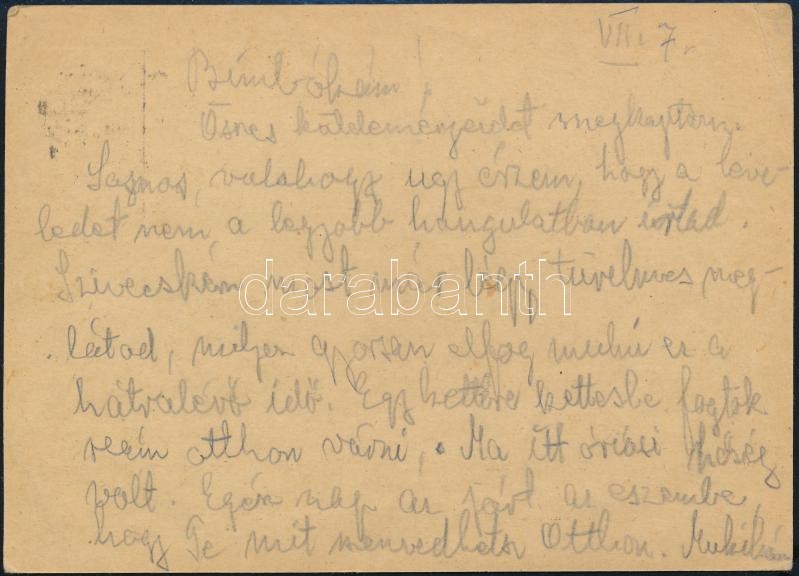 VII. 7.
Bimbókám!
Összes küldeményeidet megkaptam.
Sajnos, valahogy ugy érzem, hogy a leve-
ledet nem a legjobb hangulatban irtad.
Szivecském, most már légy türelmes meg-
látod, milyen gyorsan elfog mulni ez a
hátralévő idő. Egy kettőre kettesbe fogtok
reám otthon várni. Ma itt óriási hőség
volt. Egész nap az járt az eszembe,
hogy Te mit szenvedhetsz Otthon.
darabanth